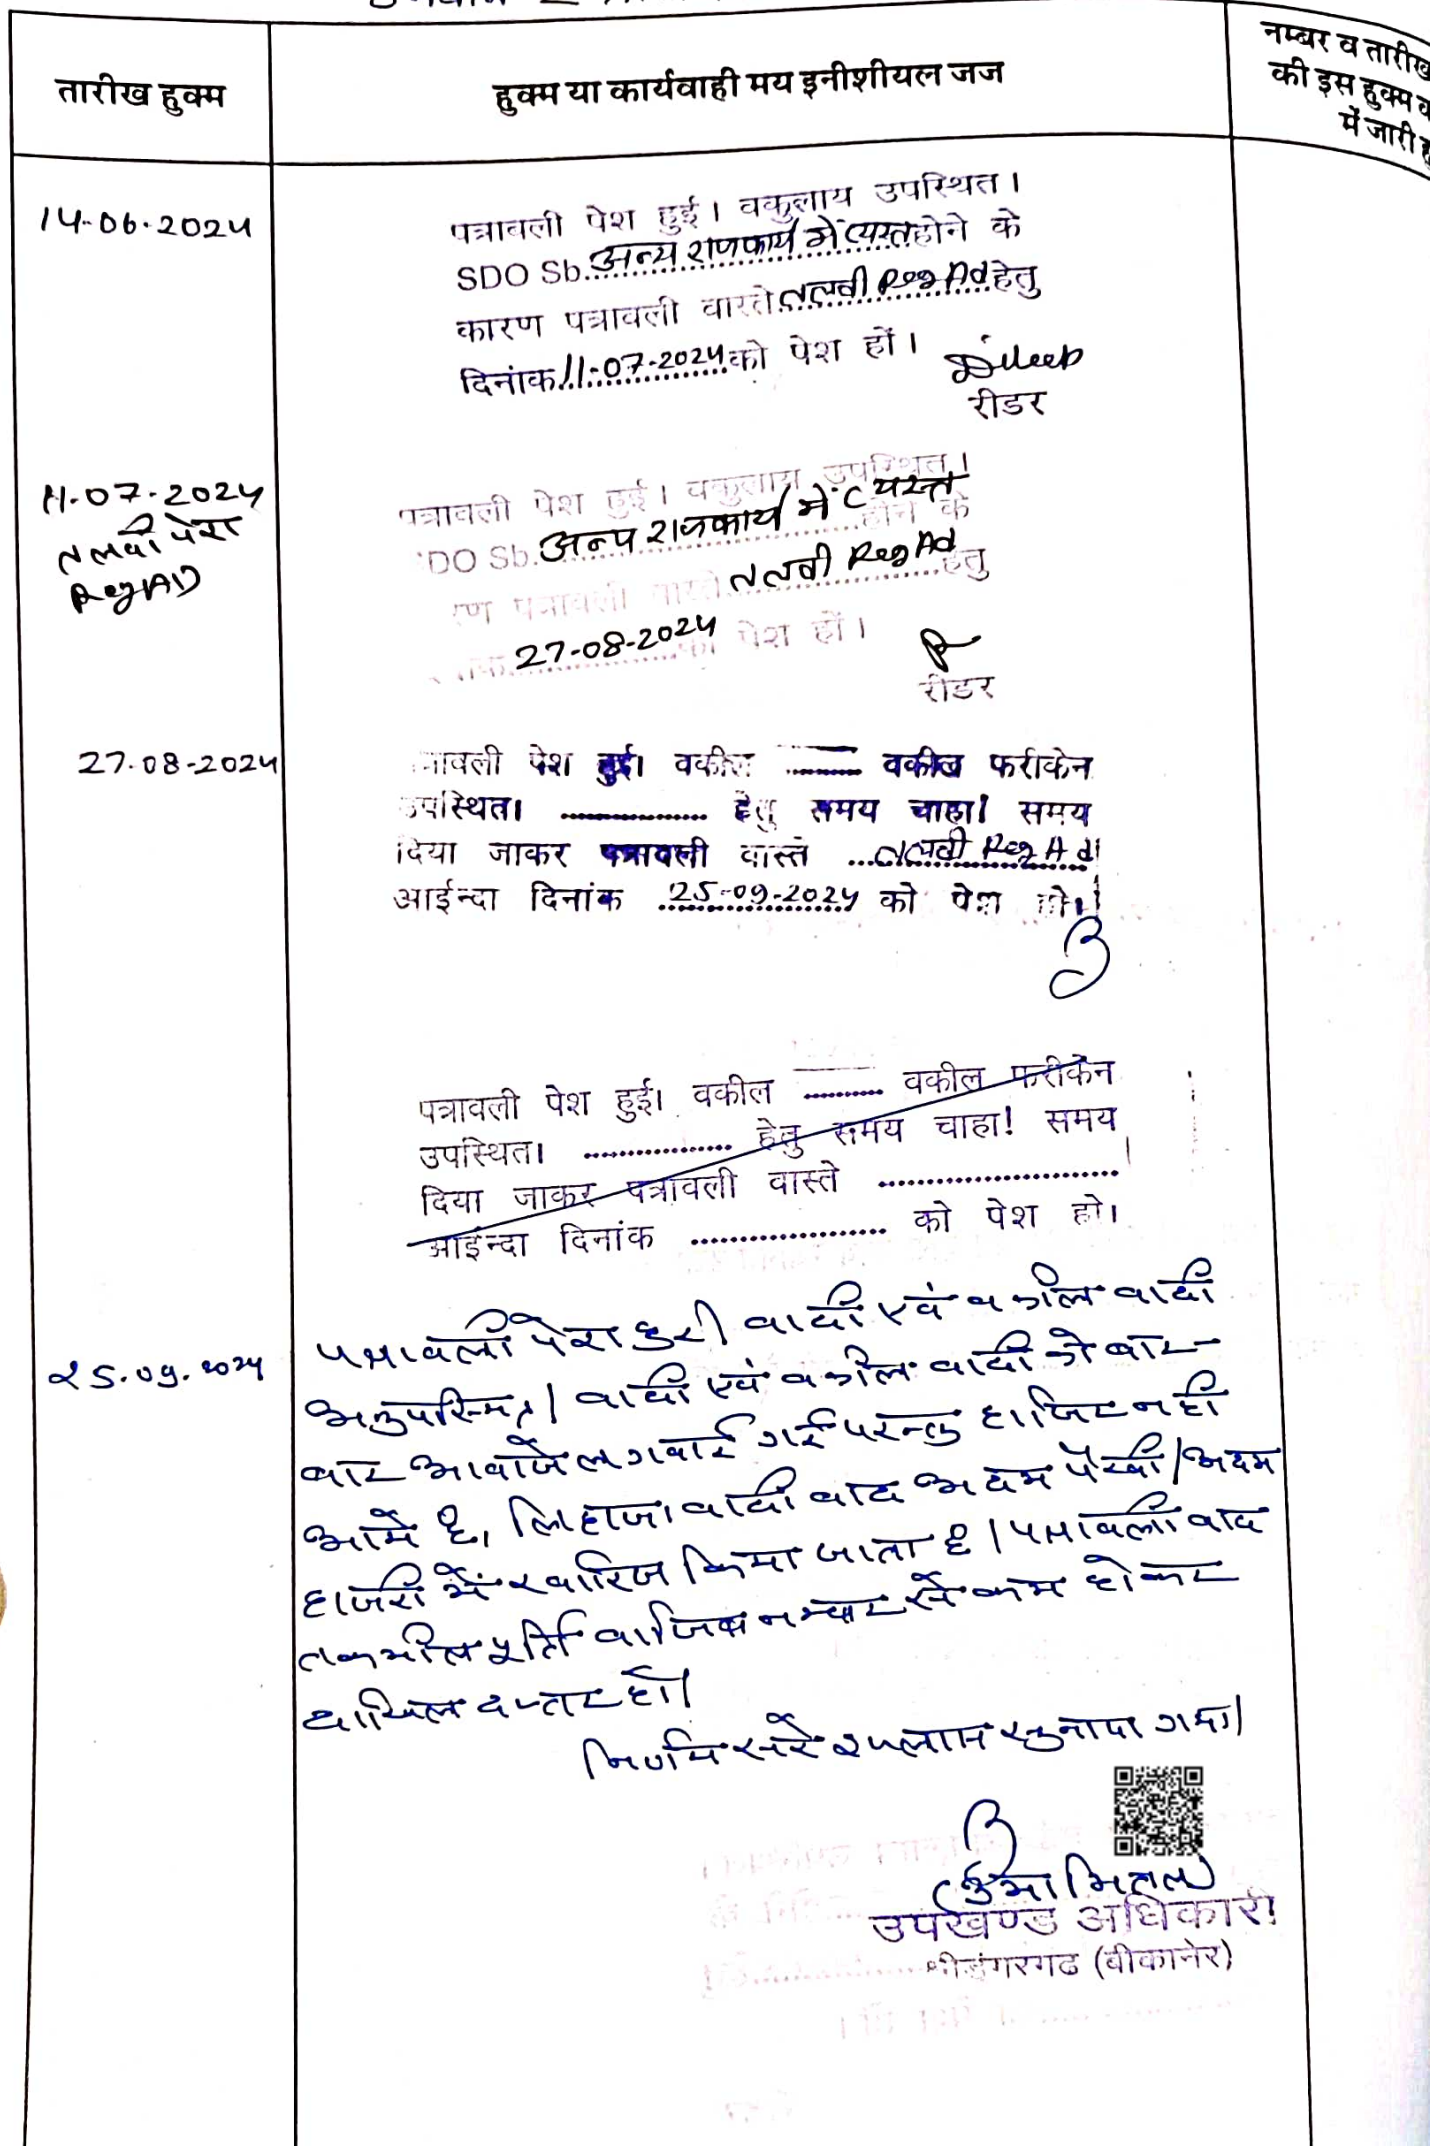 तारीख हुक्म
हुक्म या कार्यवाही मय इनीशीयल जज
नम्बर व तारीख
की इस हुक्म
में जारी
14-06-2024
पत्रावली पेश हुई। वकुलाय उपस्थित।
SDO Sb. अन्य राजकार्य में व्यस्त होने के
कारण पत्रावली वास्ते तलवी Reg Ad हेतु
दिनांक 11-07-2024 को पेश हों।
Dileep
रीडर
11-07-2024
तलवी पेश
Reg AD
पत्रावली पेश हुई। वकुलाय उपस्थित।
DO Sb. अन्य राजकार्य में व्यस्त होने के
रण पत्रावली वास्ते तलवी Reg Ad हेतु
27-08-2024 को पेश हों।
रीडर
27-08-2024
त्रावली पेश हुई। वकील ......... वकील फरीकेन
उपस्थित। .................. हेतु समय चाहा! समय
दिया जाकर पत्रावली वास्ते ...तलवी Reg Ad
आईन्दा दिनांक 25-09-2024 को पेश हो।
पत्रावली पेश हुई। वकील .......... वकील फरीकेन
उपस्थित। .................. हेतु समय चाहा! समय
दिया जाकर पत्रावली वास्ते .............................
आईन्दा दिनांक ....................... को पेश हो।
25.09.2024
पत्रावली पेश हुई। वादी एवं वकील वादी
अनुपस्थित। वादी एवं वकील वादी को बार-
बार आवाजे लगवाई गई परन्तु हाजिर नहीं
आये है, लिहाजा वादी वाद अदम पैरवी/अदम
हाजरी में खारिज किया जाता है। पत्रावली वाद
तकमील पूर्ति वाजिब नम्बर से कम होकर
दाखिल दफ्तर हो।
निर्णय सरे इजलास सुनाया गया।
(उमा मित्तल)
उपखण्ड अधिकारी
श्रीडूंगरगढ (बीकानेर)